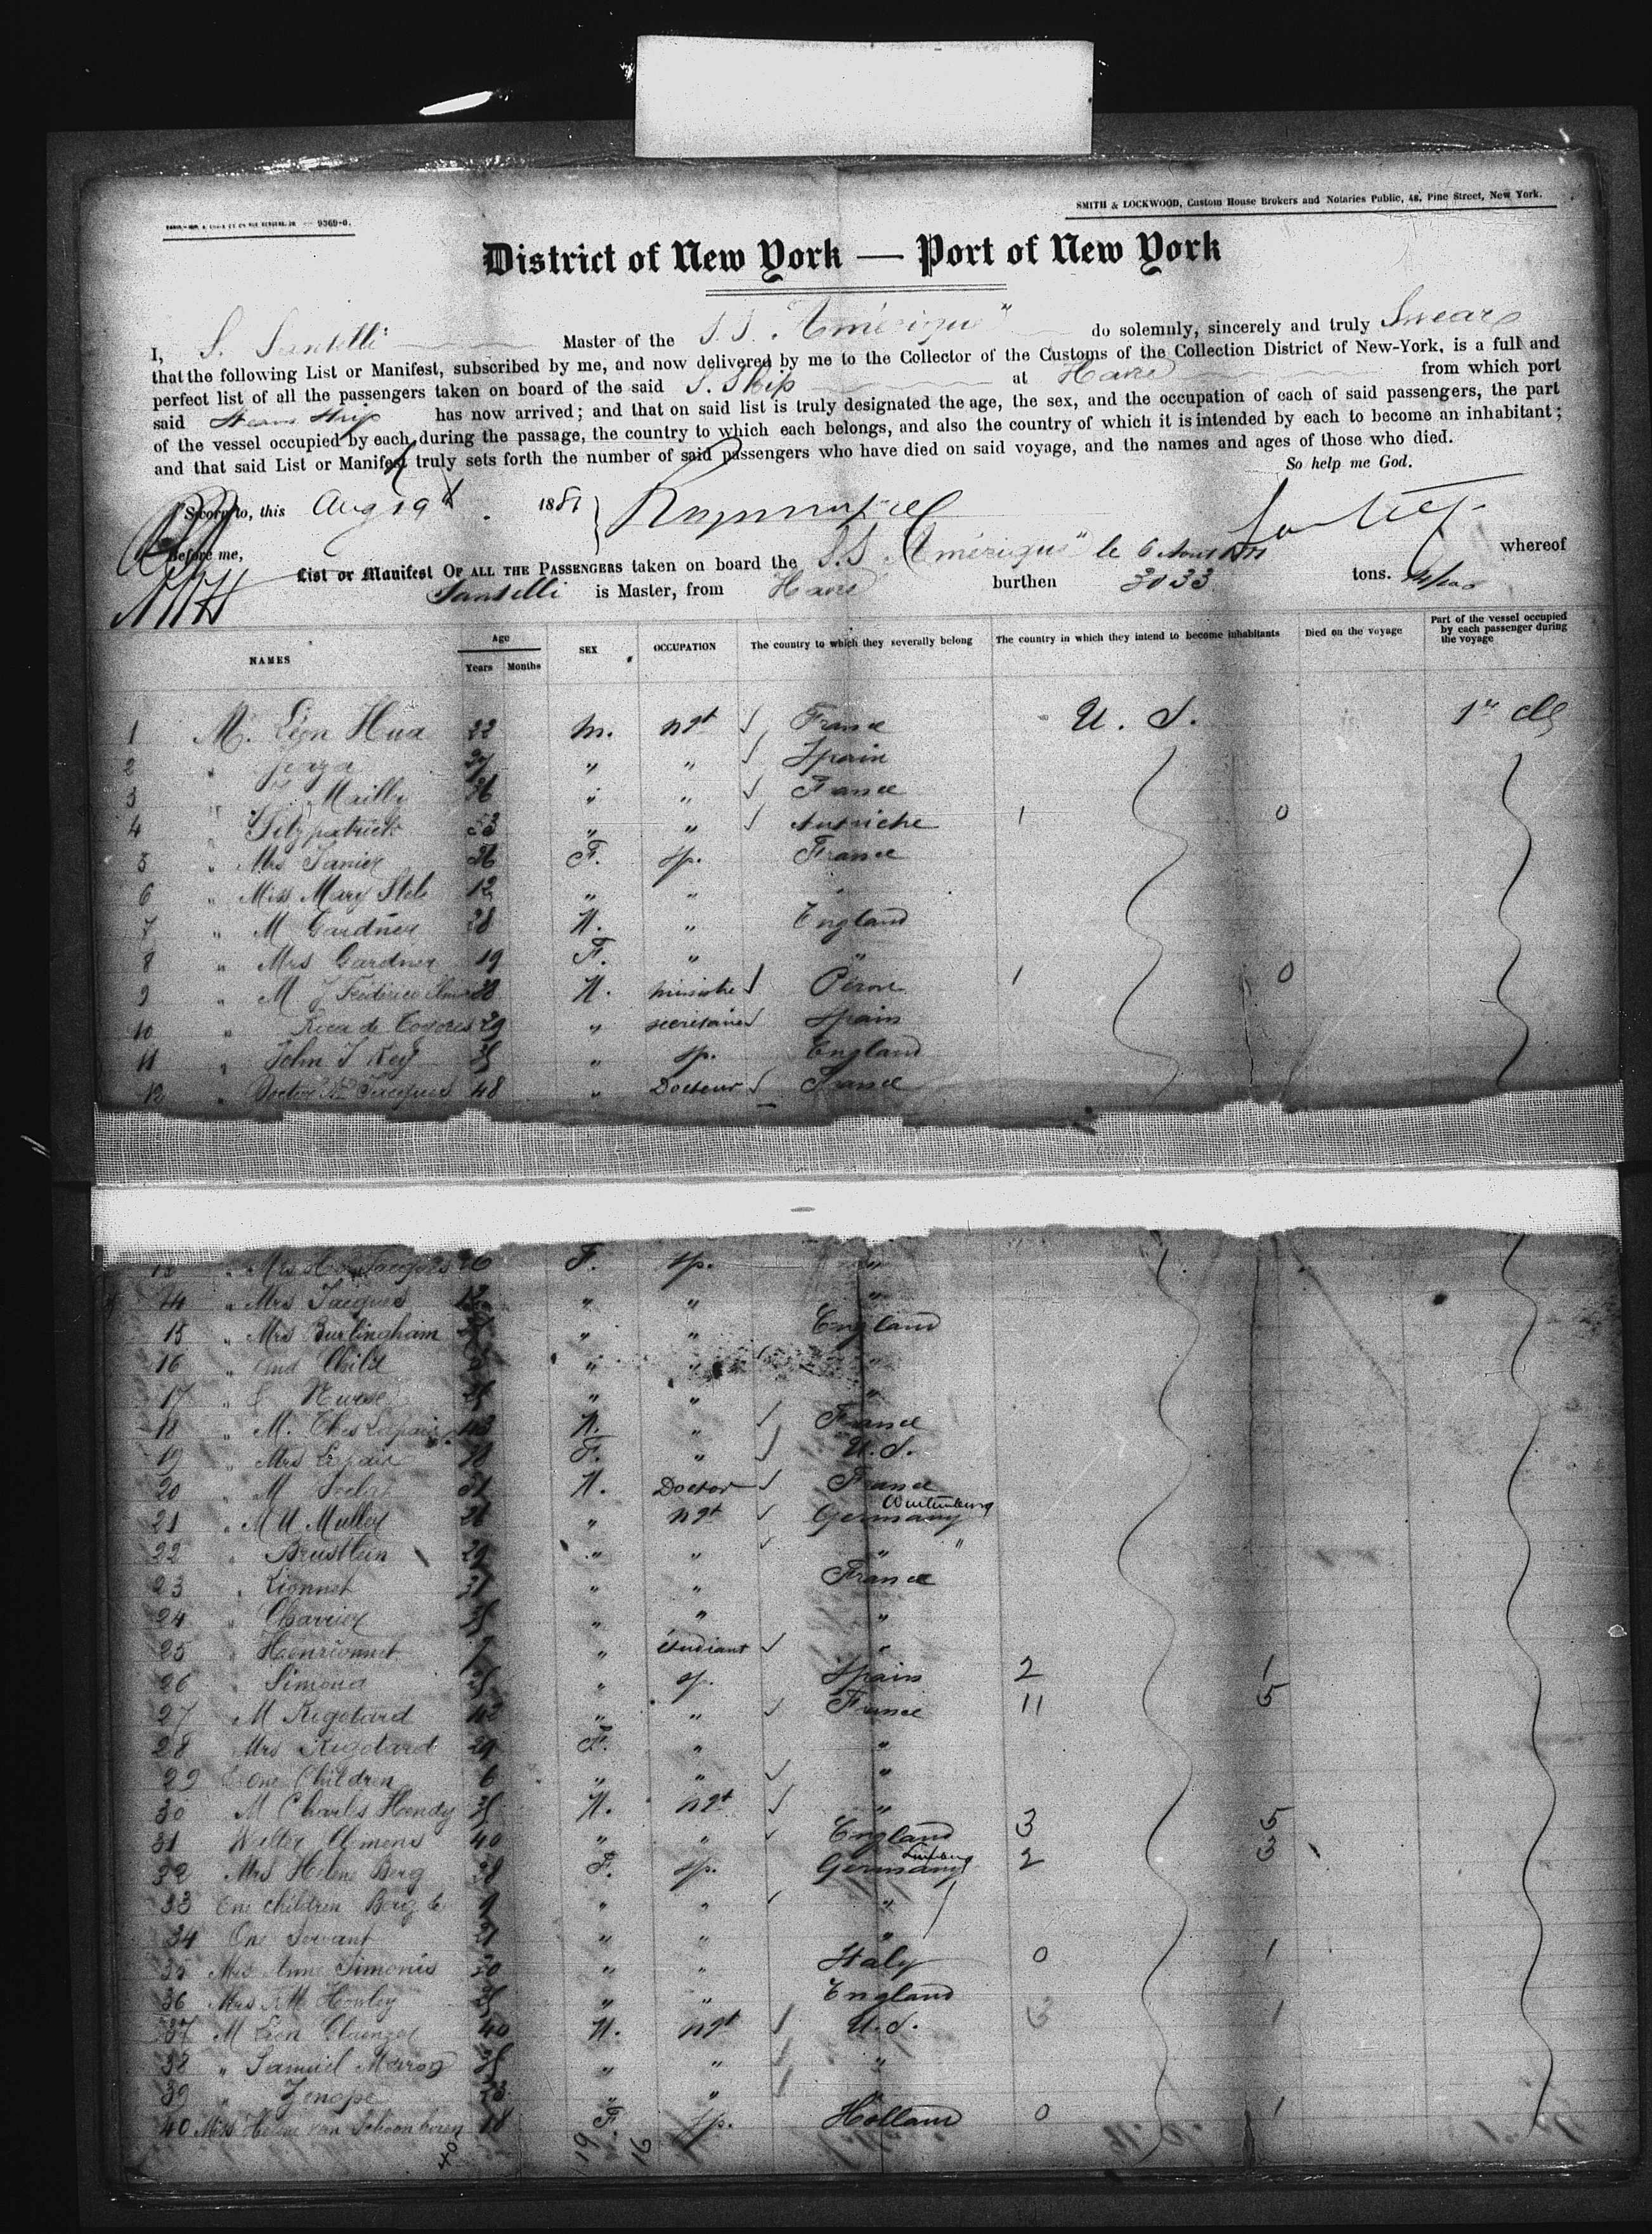 9369-0.
SMITH & LOCKWOOD, Custom House Brokers and Notaries Public, 48, Pine Street, New York.
District of New York — Port of New York
I, S. Santelli Master of the S.S. "Amérique" do solemnly, sincerely and truly Swear
that the following List or Manifest, subscribed by me, and now delivered by me to the Collector of the Customs of the Collection District of New-York, is a full and
perfect list of all the passengers taken on board of the said S. Ship at Havre from which port
said Steam Ship has now arrived; and that on said list is truly designated the age, the sex, and the occupation of each of said passengers, the part
of the vessel occupied by each during the passage, the country to which each belongs, and also the country of which it is intended by each to become an inhabitant;
and that said List or Manifest truly sets forth the number of said passengers who have died on said voyage, and the names and ages of those who died.
So help me God.
Sworn to, this Aug 19th 1881
Before me,
List or Manifest OF ALL THE PASSENGERS taken on board the S.S "Amérique" le 6 Aout whereof
Santelli is Master, from Havre burthen 3033 tons.
NAMES Age Years Months SEX OCCUPATION The country to which they severally belong The country in which they intend to become inhabitants Died on the voyage Part of the vessel occupied by each passenger during the voyage
1 M. Léon Hua 22 m. ngt France U. S. 1re cls
2 " " " Spain
3 " Mailly 26 " " France
4 " Fitzpatrick 53 " " Autriche 1 0
5 " Mrs Tanier 26 F. sp. France
6 " Miss Mary Stele 12 " " "
7 " M Gardner 28 M. " England
8 " Mrs Gardner 19 F. " "
9 " M J Fédérico M. ministre Pérou 1 0
10 " Rica de Cogores 29 " secrétaire Spain
11 " John T Key 35 " sp. England
12 " Doctor Jacques 48 " Docteur France
13 " Mrs Jacques 26 F. sp. "
14 " Mrs Jacques " " "
15 " Mrs Burlingham " " England
16 " and Child " " "
17 " & Nurse " " "
18 " M. Ches Lepair 43 M. " France
19 " Mrs Lepair 18 F. " U. S.
20 " M M. Doctor France
21 " M U Muller 26 " ngt Germany Wurtemberg
22 " Breistlein 29 " " " "
23 " Lionnet 31 " " France
24 " Charrier 35 " " "
25 " Henrionnet " étudiant "
26 " Simona 35 " sp. Spain 2 1
27 M Rigotard 42 " " France 11 5
28 Mrs Rigotard 29 F. " "
29 & one Children 6 " " "
30 M Charles Hendy 35 M. ngt "
31 Walter Clemens 40 " " England 3 5
32 Mrs Helene Berg 28 F. sp. Germany 2 3
33 One children Berg " " "
34 One Servant 21 " " "
35 Mrs Anne Simonis 30 " " Italy 0 1
36 Mrs M Honley 35 " " England
37 M Leon 40 M. ngt U. S. 3 1
38 " Samuel 35 " " "
39 " Zenope 23 " " "
40 Miss Helene van Schoonhoven 18 F. sp. Holland 0 1
40 19 16